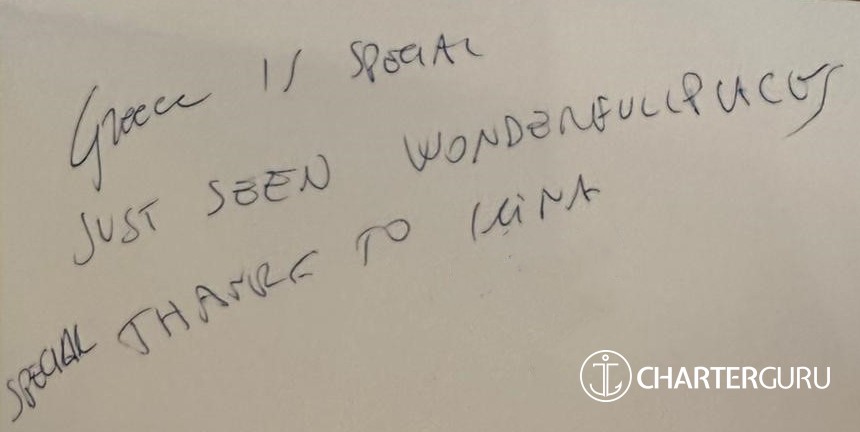 Greece IS SPECIAL
JUST SEEN WONDERFULL PLACES
SPECIAL THANKS TO
CHARTERGURU